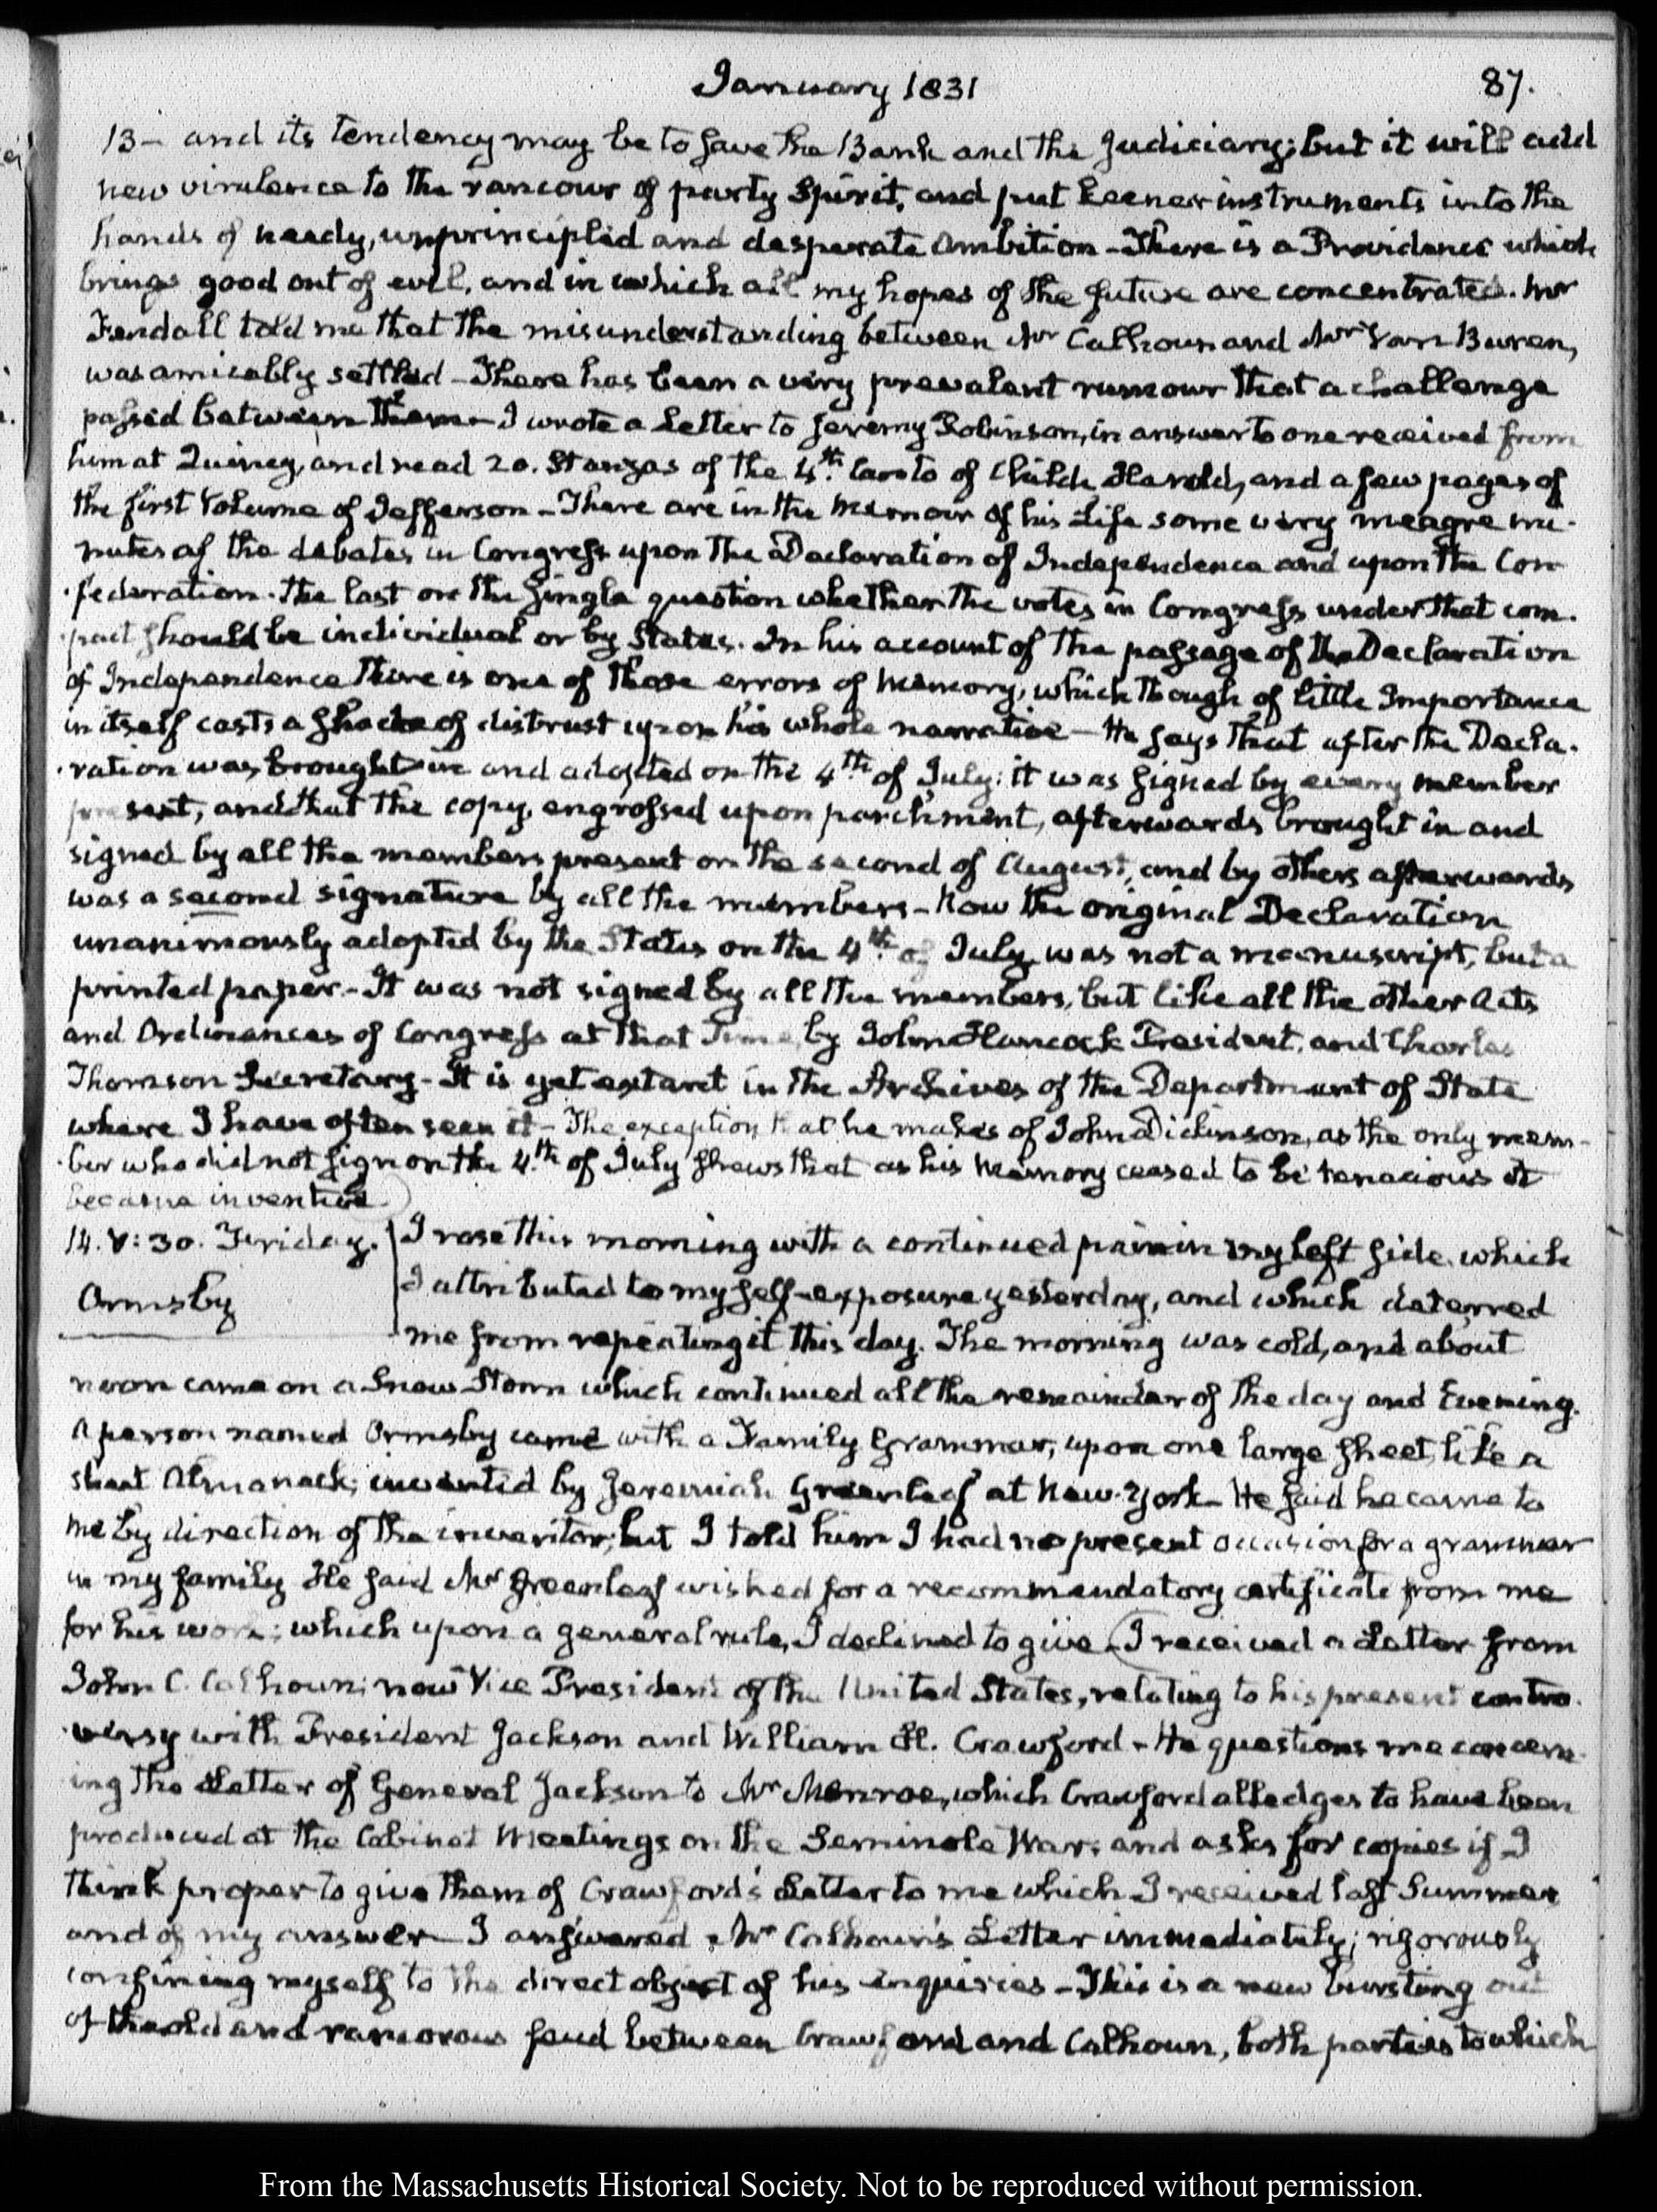 January 1831
87.
13— and its tendency may be to save the Bank and the Judiciary; but it will add
new virulence to the rancour of party Spirit, and put keener instruments into the
hands of needy, unprincipled and desperate Ambition – There is a Providence which
brings good out of evil, and in which all my hopes of the future are concentrated. Mr
Fendall told me that the misunderstanding between Mr Calhoun and Mr Van Buren,
was amicably settled – There has been a very prevalent rumour that a challenge
passed between them – I wrote a Letter to Jeremy Robinson, in answer to one received from
him at Quincy, and read 20. Stanzas of the 4th. Canto of Childe Harold, and a few pages of
the first Volume of Jefferson – There are in the Memoir of his Life some very meagre mi-
nutes of the debates in Congress upon the Declaration of Independence and upon the Con-
federation. The last on the single question whether the votes in Congress under that com-
pact should be individual or by States. In his account of the passage of the Declaration
of Independence there is one of those errors of Memory, which though of little Importance
in itself casts a shade of distrust upon his whole narrative – He says that after the Decla-
ration was brought in and adopted on the 4th of July: it was signed by every member
present, and that the copy, engrossed upon parchment, afterwards brought in and
signed by all the members present on the second of August, and by others afterwards
was a second signature by all the members – Now the original Declaration
unanimously adopted by the States on the 4th. of July was not a manuscript, but a
printed paper. – It was not signed by all the members, but like all the other Acts
and Ordinances of Congress at that Time, by John Hancock President, and Charles
Thomson Secretary – It is yet extant in the Archives of the Department of State
where I have often seen it – The exception that he makes of John Dickinson, as the only mem-
ber who did not sign on the 4.th of July shews that as his Memory ceased to be tenacious it
became inventive
14. V: 30. Friday.
Ormsby
I rose this morning with a continued pain in my left side, which
I attributed to my self-exposure yesterday, and which deterred
me from repeating it this day. The morning was cold, and about
noon came on a Snow Storm which continued all the remainder of the day and Evening.
A person named Ormsby came with a Family Grammar, upon one large sheet, like a
sheet Almanack; invented by Jeremiah Greenleaf at New-York – He said he came to
me by direction of the inventor; but I told him I had no present occasion for a grammar
in my family He said Mr Greenleaf wished for a recommendatory certificate from me
for his work; which upon a general rule, I declined to give – I received a Letter from
John C. Calhoun; now Vice President of the United States, relating to his present contro-
versy with President Jackson and William H. Crawford – He questions me concern-
ing the Letter of General Jackson to Mr Monroe, which Crawford alledges to have been
produced at the Cabinet Meetings on the Seminole War: and asks for copies if I
think proper to give them of Crawford's Letter to me which I received last Summer
and of my answer – I answered Mr Calhoun's Letter immediately; rigorously
confining myself to the direct object of his enquiries – This is a new bursting out
of the old and rancorous feud between Crawford and Calhoun, both parties to which
From the Massachusetts Historical Society. Not to be reproduced without permission.